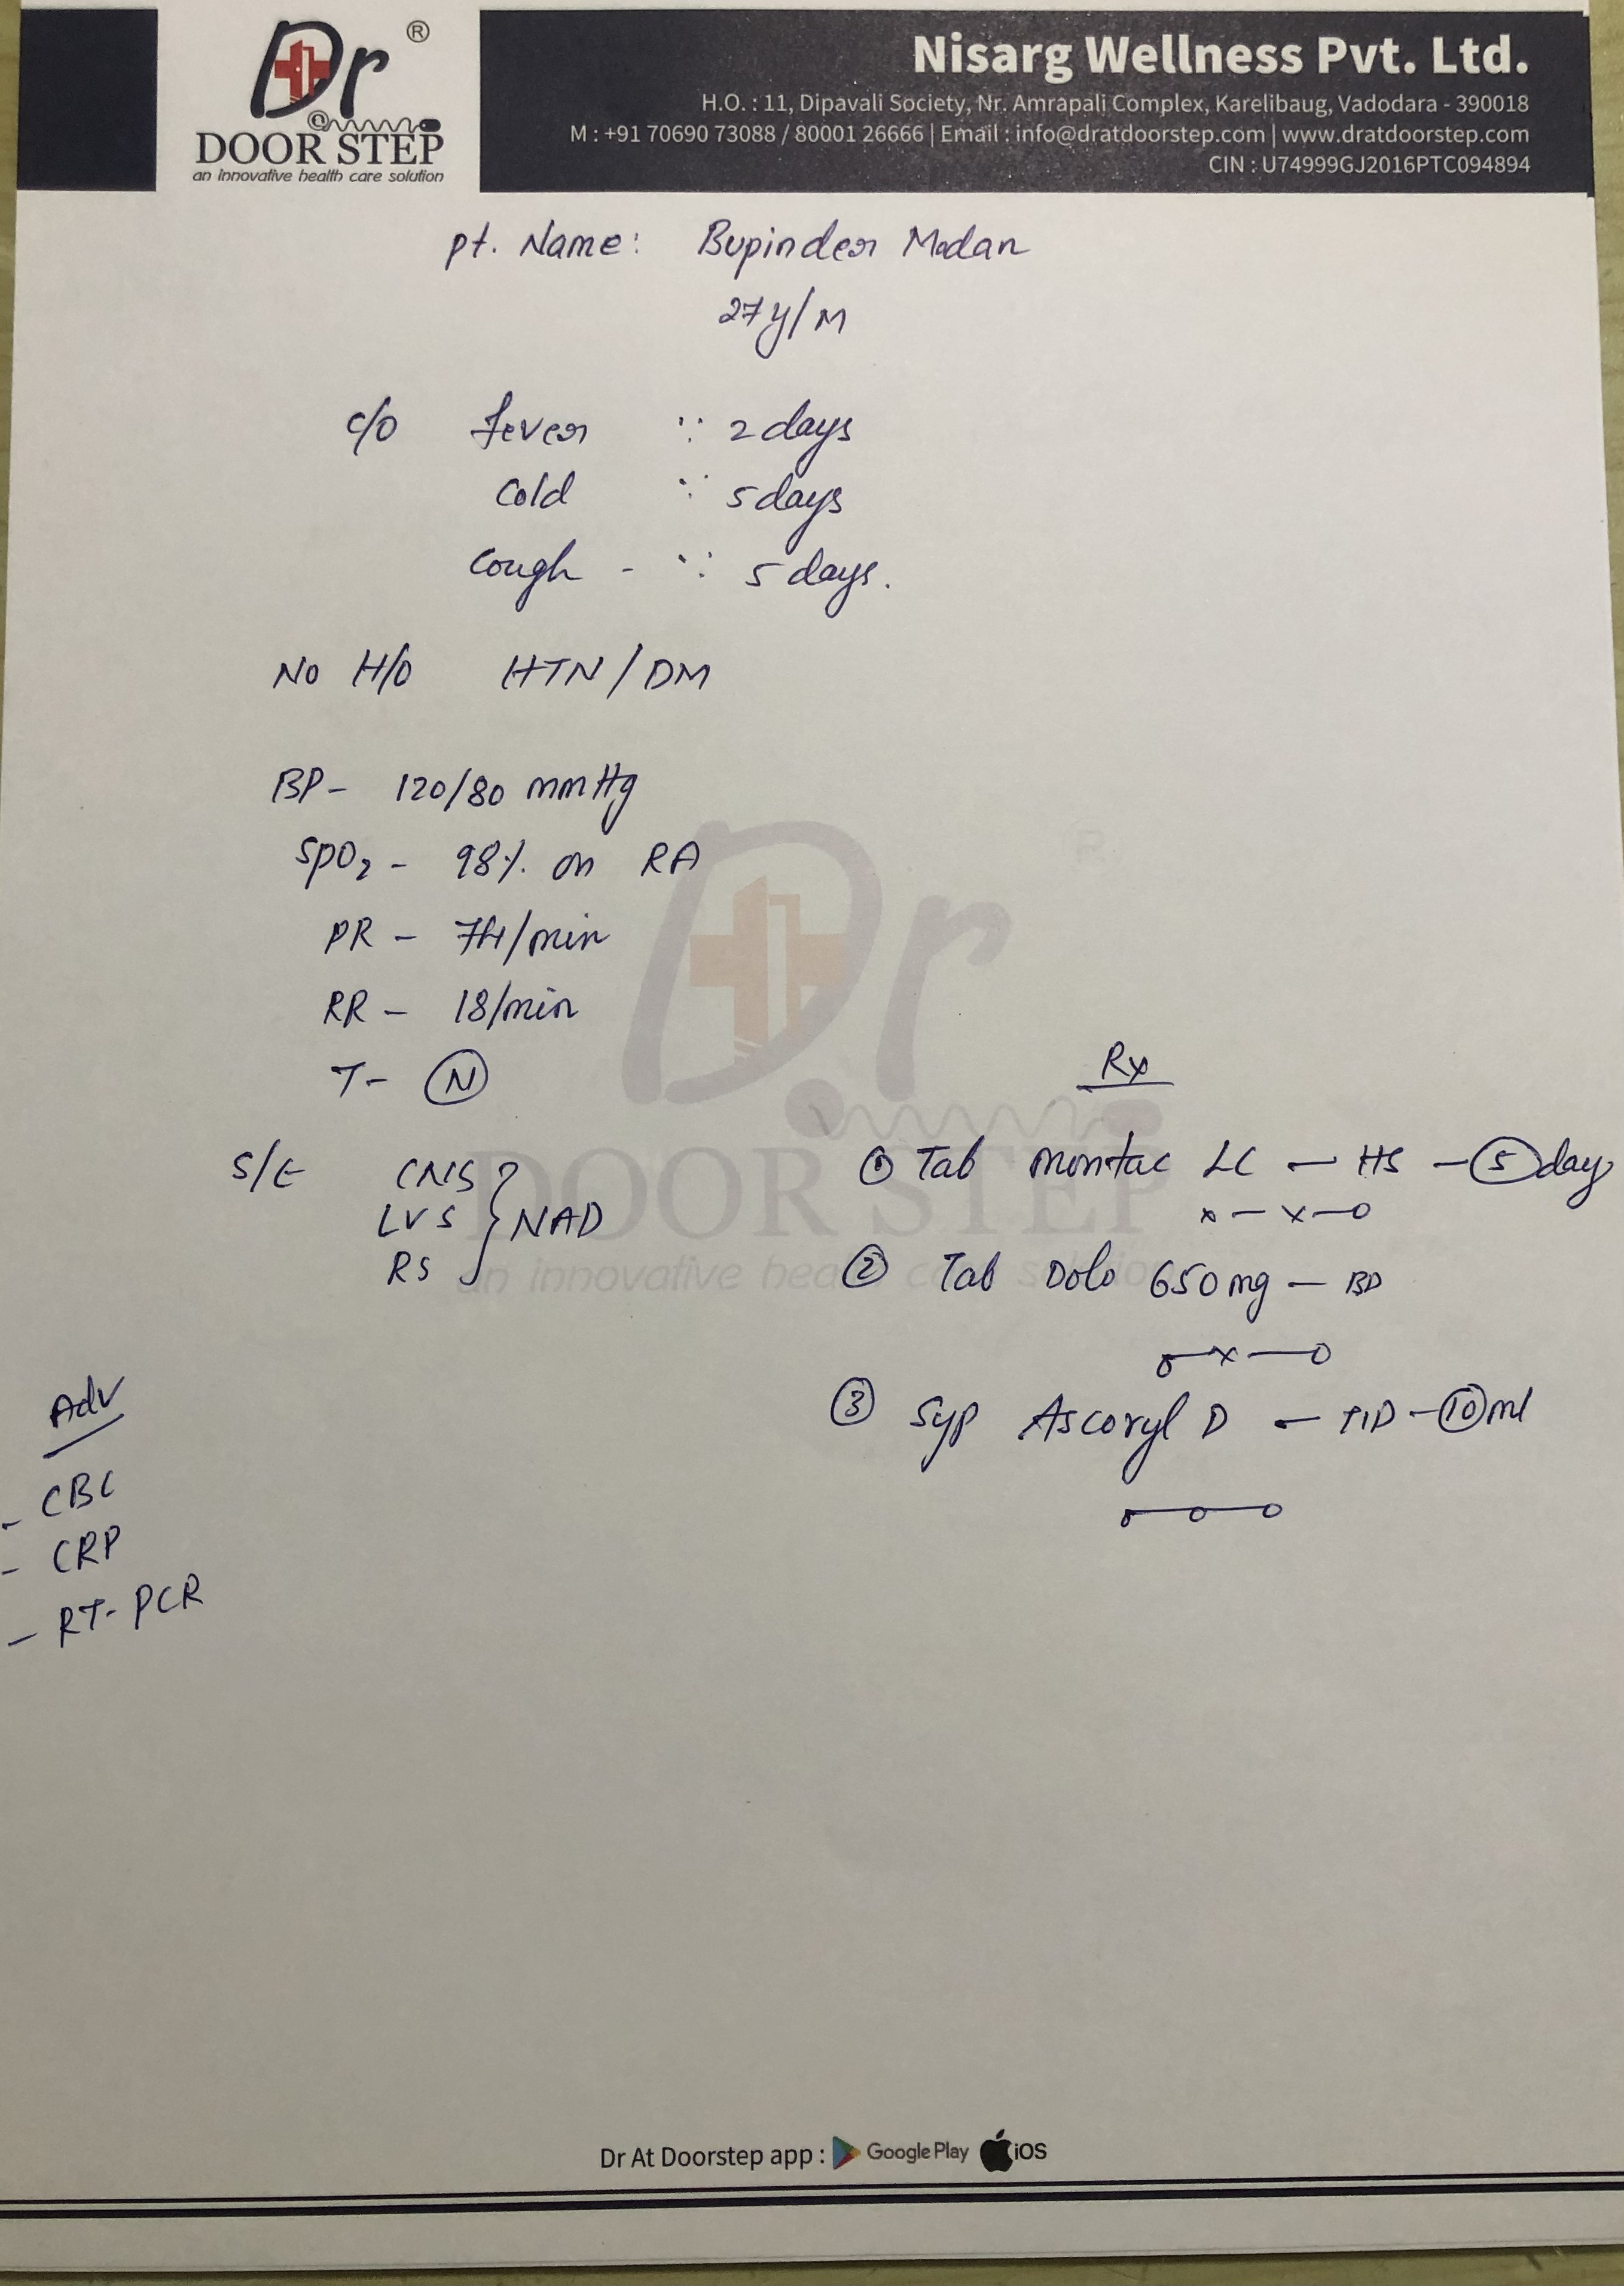 Dr ®
@
DOOR STEP
an innovative health care solution
Nisarg Wellness Pvt. Ltd.
H.O. : 11, Dipavali Society, Nr. Amrapali Complex, Karelibaug, Vadodara - 390018
M : +91 70690 73088 / 80001 26666 | Email : info@dratdoorstep.com | www.dratdoorstep.com
CIN : U74999GJ2016PTC094894
Pt. Name: Bupinder Madan
27y/M
c/o fever ∵ 2 days
cold ∵ 5 days
Cough - ∵ 5 days.
No H/O HTN / DM
BP - 120/80 mmHg
SpO2 - 98% on RA
PR - 74/min
RR - 18/min
T - N
S/E CNS
CVS } NAD
RS
Rx
① Tab Montac LC - HS - 5 day
x - x - o
② Tab Dolo 650mg - BD
o - x - o
③ Syp Ascoryl D - TID - 10 ml
o - o - o
Adv
- CBC
- CRP
- RT-PCR
Dr
DOOR STEP
an innovative health care solution
Dr At Doorstep app : Google Play iOS